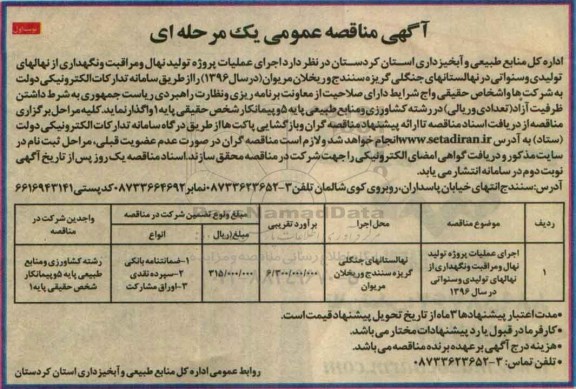 نوبت اول
آگهی مناقصه عمومی یک مرحله ای
اداره کل منابع طبیعی و آبخیزداری استان کردستان در نظر دارد اجرای عملیات پروژه تولید نهال ومراقبت ونگهداری از نهالهای
تولیدی وسنواتی در نهالستانهای جنگلی گریزه سنندج وریخلان مریوان (در سال۱۳۹۶) را از طریق سامانه تدارکات الکترونیکی دولت
به شرکت ها واشخاص حقیقی واج شرایط دارای صلاحیت از معاونت برنامه ریزی ونظارت راهبردی ریاست جمهوری به شرط داشتن
ظرفیت آزاد(تعدادی وریالی) در رشته کشاورزی ومنابع طبیعی پایه ۵ وپیمانکار شخص حقیقی پایه۱ واگذار نماید. کلیه مراحل برگزاری
مناقصه از دریافت اسناد مناقصه تا ارائه پیشنهاد مناقصه گران وبازگشایی پاکت ها از طریق درگاه سامانه تدارکات الکترونیکی دولت
(ستاد) به آدرس www.setadiran.ir انجام خواهد شد ولازم است مناقصه گران در صورت عدم عضویت قبلی، مراحل ثبت نام در
سایت مذکور و دریافت گواهی امضای الکترونیکی را جهت شرکت در مناقصه محقق سازند. اسناد مناقصه یک روز پس از تاریخ آگهی
نوبت دوم در سامانه انتشار می یابد.
آدرس: سنندج انتهای خیابان پاسداران، روبروی کوی شالمان تلفن۳-۰۸۷۳۳۶۲۳۶۵۲ نمابر۰۸۷۳۳۶۶۴۶۹۲ کدپستی۶۶۱۶۹۴۳۱۴۱
ردیف
موضوع مناقصه
محل اجرا
برآورد تقریبی
مبلغ ونوع تضمین شرکت در مناقصه
مبلغ/ریال
انواع
واجدین شرکت در
مناقصه
۱
اجرای عملیات پروژه تولید
نهال ومراقبت ونگهداری از
نهالهای تولیدی وسنواتی
در سال ۱۳۹۶
نهالستانهای جنگلی
گریزه سنندج وریخلان
مریوان
۶/۳۰۰/۰۰۰/۰۰۰
۳۱۵/۰۰۰/۰۰۰
۱-ضمانتنامه بانکی
۲-سپرده نقدی
۳-اوراق مشارکت
رشته کشاورزی ومنابع
طبیعی پایه ۵وپیمانکار
شخص حقیقی پایه۱
•مدت اعتبار پیشنهادها ۳ماه از تاریخ تحویل پیشنهاد قیمت است.
•کارفرما در قبول یا رد پیشنهادات مختار می باشد.
•هزینه درج آگهی بر عهده برنده مناقصه می باشد.
•تلفن تماس: ۳-۰۸۷۳۳۶۲۳۶۵۱
روابط عمومی اداره کل منابع طبیعی و آبخیزداری استان کردستان